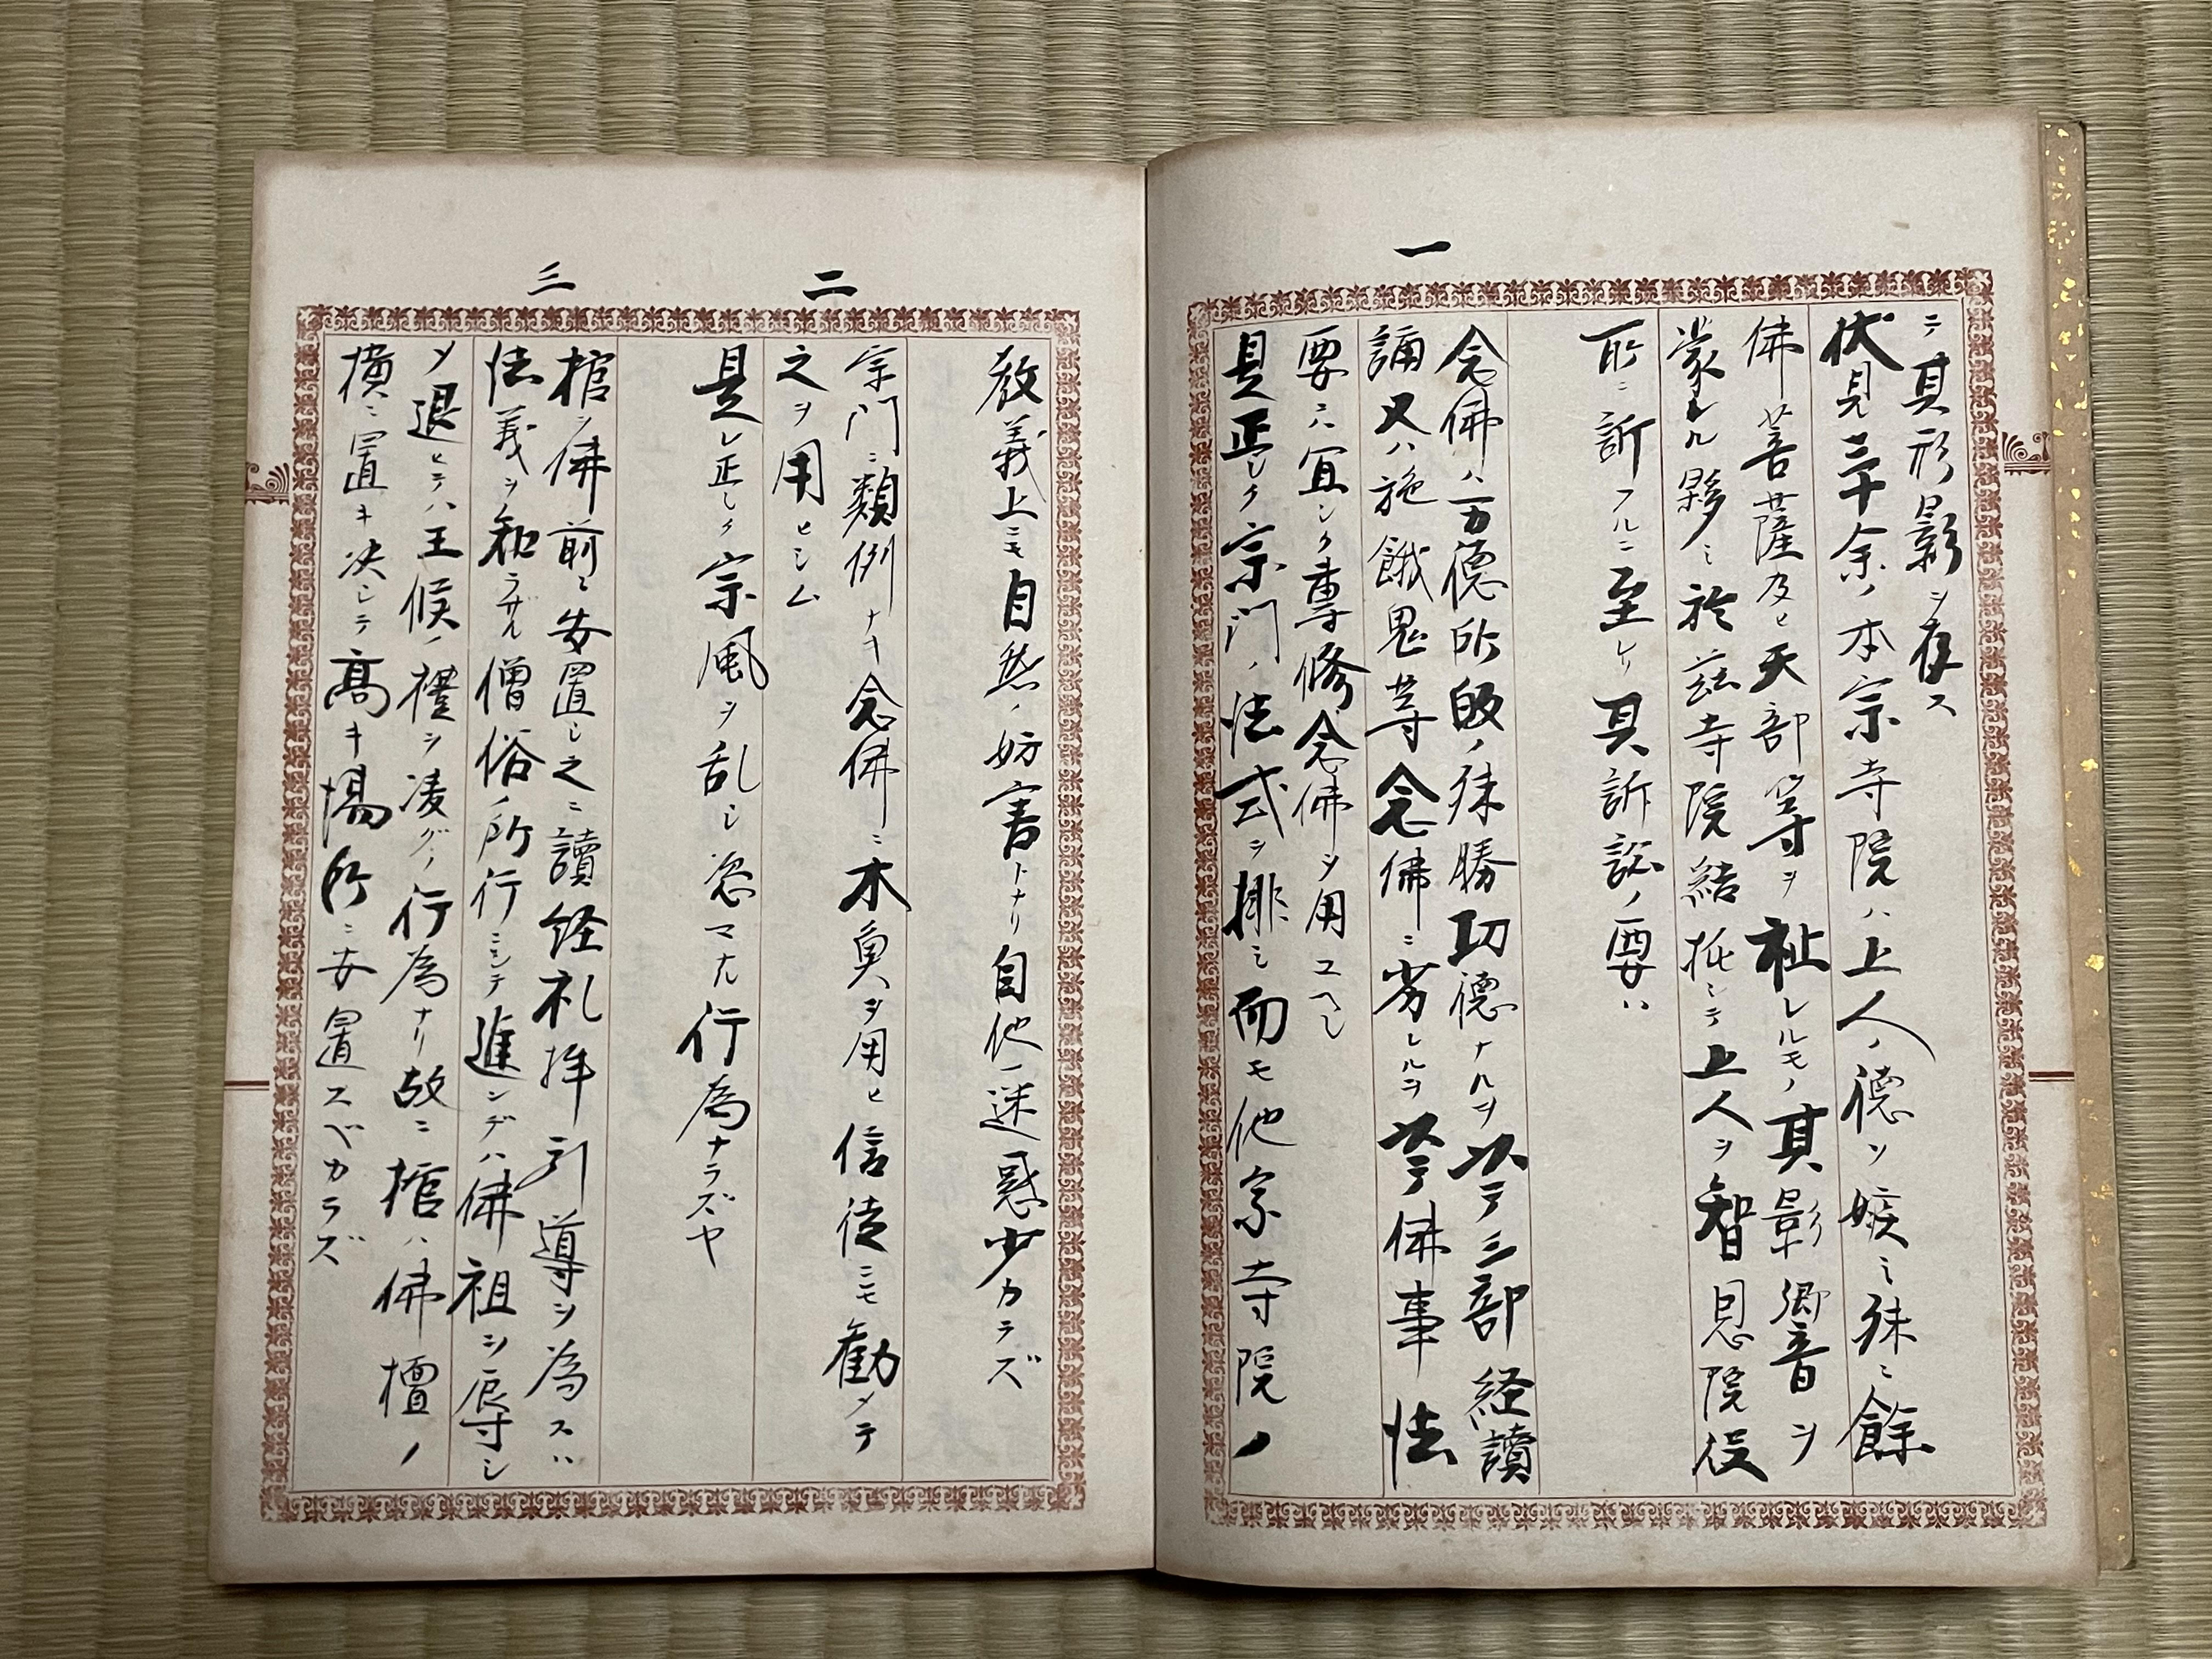 ニテ其形影ヲ存ス
伏見三十余ノ本宗寺院ハ上人ノ徳ヲ嫉ミ殊ニ餘
佛菩薩及ヒ天部等ヲ祉レルモノ其影響ヲ
蒙レル夥シ於茲寺院結托シテ上人ヲ智恩院役
所ニ訴フルニ至レリ其訴訟ノ要ハ
一
念佛ハ万徳所皈ノ殊勝功徳ナルヲ以テ三部経讀
誦又ハ施餓鬼等念佛ニ劣レルヲ以テ佛事法
要ニハ宜シク專修念佛ヲ用ユヘシ
是正シク宗門ノ法式ヲ排シ而モ他宗寺院ノ
教義上ニモ自然ノ妨害トナリ自他ノ迷惑少カラズ
二
宗門ニ類例ナキ念佛ニ木魚ヲ用ヒ信徒ニモ勸メテ
之ヲ用ヒシム
是レ正シク宗風ヲ乱シ恣マナル行為ナラズヤ
三
棺ヲ佛前ニ安置シ之ニ讀経礼拝引導ヲ為スハ
法義ヲ知ラザル僧俗ノ所行ニシテ進ンデハ佛祖ヲ辱シ
メ退ヒテハ王候ノ禮ヲ凌グノ行為ナリ故ニ棺ハ佛檀ノ
横ニ置キ决シテ高キ場所ニ安置スベカラズ